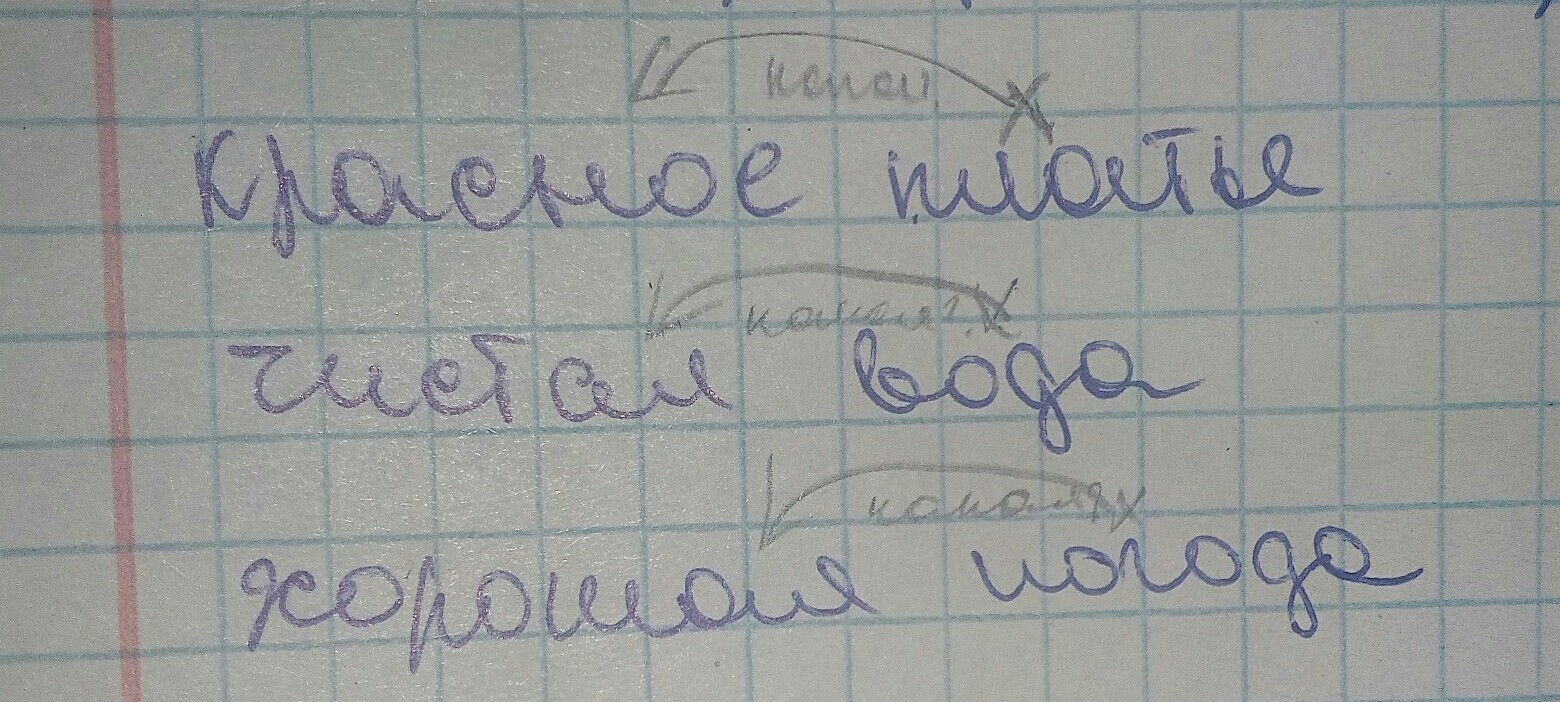 красное платье
какая?
чистая вода
какая?
хорошая погода